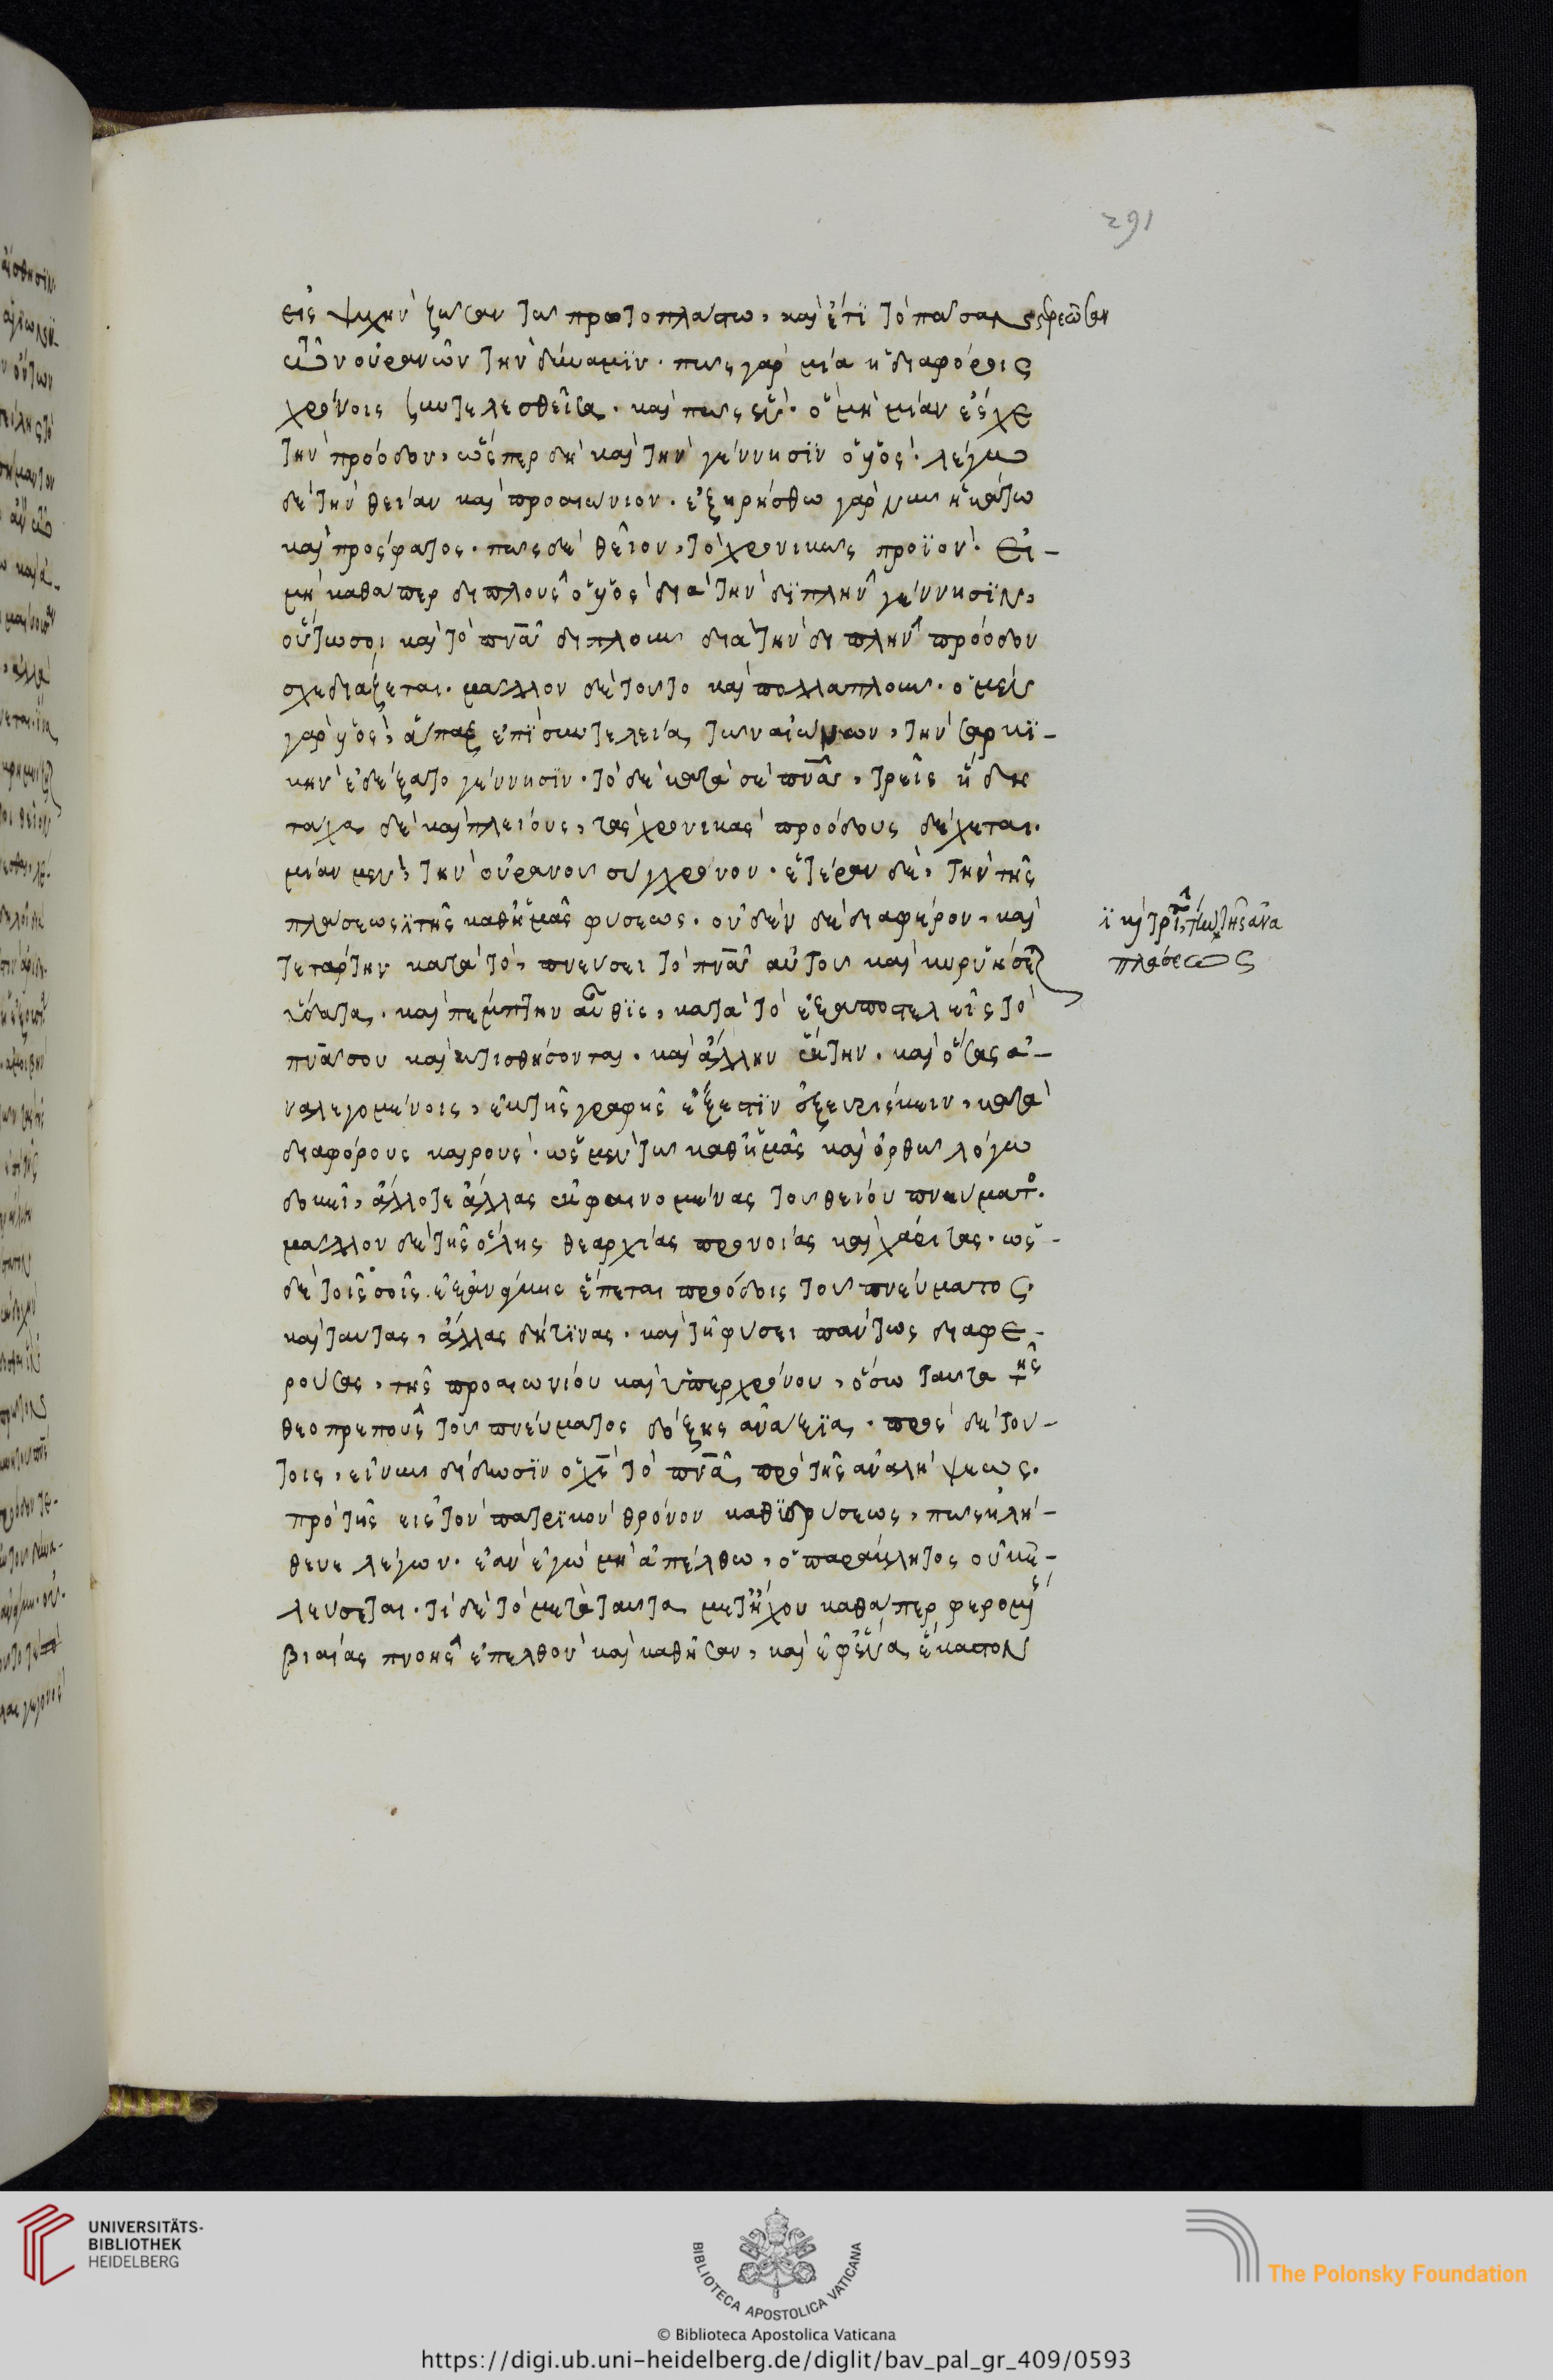 291
εἰς ψυχὴν ζῶσαν τῶ πρωτοπλάστω, καὶ ἔτι τὸ πᾶσαν στερεῶσαν
τῶν οὐρανῶν τὴν δύναμιν. πῶς γὰρ μία ἡ διαφόροις
χρόνοις συντελεσθεῖσα. καὶ πῶς εἷς. ὁ μὴ μίαν ἔχε
τὴν πρόοδον, ὥσπερ δὴ καὶ τὴν γέννησιν ὁ υἱός. λέγω
δὲ τὴν θείαν καὶ προαιώνιον. ἐξηρήσθω γὰρ νῦν ἡ κάτω
καὶ πρόσφατος. πῶς δὲ θεῖον, τὸ χρονικῶς προϊόν. εἰ-
μὴ καθάπερ διπλοῦς ὁ υἱὸς διὰ τὴν διπλὴν γέννησιν,
οὕτω σοι καὶ τὸ πνᾶ διπλοῦν διὰ τὴν διπλὴν πρόοδον
σχεδιάζεται. μᾶλλον δὲ τοῦτο καὶ πολλαπλοῦν. ὁ μὲν
γὰρ υἱὸς, ἅπαξ ἐπὶ συντελεία τῶν αἰώνων, τὴν σαρκι-
κὴν ἐδέξατο γέννησιν. τὸ δὲ κατὰ σὲ πνᾶ, τρεῖς ἤδη
τάχα δὲ καὶ πλείους, τὰς χρονικὰς προόδους δέχεται.
μίαν μὲν, τὴν οὐρανοῦ σύγχρονον. ἑτέραν δὲ, τὴν τῆς
πλάσεως τῆς καθ ἡμᾶς φύσεως. οὐδὲν δὲ διαφέρον, καὶ
τετάρτην κατὰ τὸ, πνεύσει τὸ πνᾶ αὐτοῦ καὶ ῥυήσε
ὕδατα. καὶ πέμπτην αὖθις, κατὰ τὸ ἐξαποστελεῖς τὸ
πνᾶ σου καὶ κτισθήσονται. καὶ ἄλλην ἕκτην. καὶ ὅσας ἀ-
ναλεγομένοις, ἐκ τῆς γραφῆς ἔξεστιν ἐξευρίσκειν, κατὰ
διαφόρους καιροὺς. ὡς μὲν τῶ καθ ἡμᾶς καὶ ὀρθῶ λόγω
δοκεῖ, ἄλλοτε ἄλλας ἐκφαινομένας τοῦ θείου πνεύματο.
μᾶλλον δὲ τῆς ὅλης θεαρχίας προνοίας καὶ χάριτας. ὡς-
δὲ τοῖς σοῖς ἐξ ἀνάγκης ἕπεται προόδοις τοῦ πνεύματος.
καὶ ταύτας, ἄλλας δή τινας. καὶ τῆ φύσει πάντως διαφε-
ρούσας, τῆς προαιωνίου καὶ ὑπερχρόνου, ὅσω ταῦτα τῆς
θεοπρεποῦς τοῦ πνεύματος δόξης ἀνάξια. πρὸς δὲ τού-
τοις, εἰ νῦν δίδωσιν ὁ χς τὸ πνᾶ, πρὸ τῆς ἀναλήψεως.
πρὸ τῆς εἰς τὸν πατρικὸν θρόνον καθιδρύσεως, πῶς ἠλή-
θευε λέγων. ἐὰν ἐγὼ μὴ ἀπέλθω, ὁ παράκλητος οὐκ ἐ-
λεύσεται. τί δὲ τὸ μετὰ ταῦτα μετ ἤχου καθάπερ φερομς
βιαίας πνοῆς ἐπελθὸν καὶ καθῆσαν, καὶ ἐφ ἕνα ἕκαστον
ϊ καὶ τρίτην τὴν τῆς ἀνα
πλάσεως
UNIVERSITÄTS-
BIBLIOTHEK
HEIDELBERG
BIBLIOTECA APOSTOLICA VATICANA
The Polonsky Foundation
© Biblioteca Apostolica Vaticana
https://digi.ub.uni-heidelberg.de/diglit/bav_pal_gr_409/0593